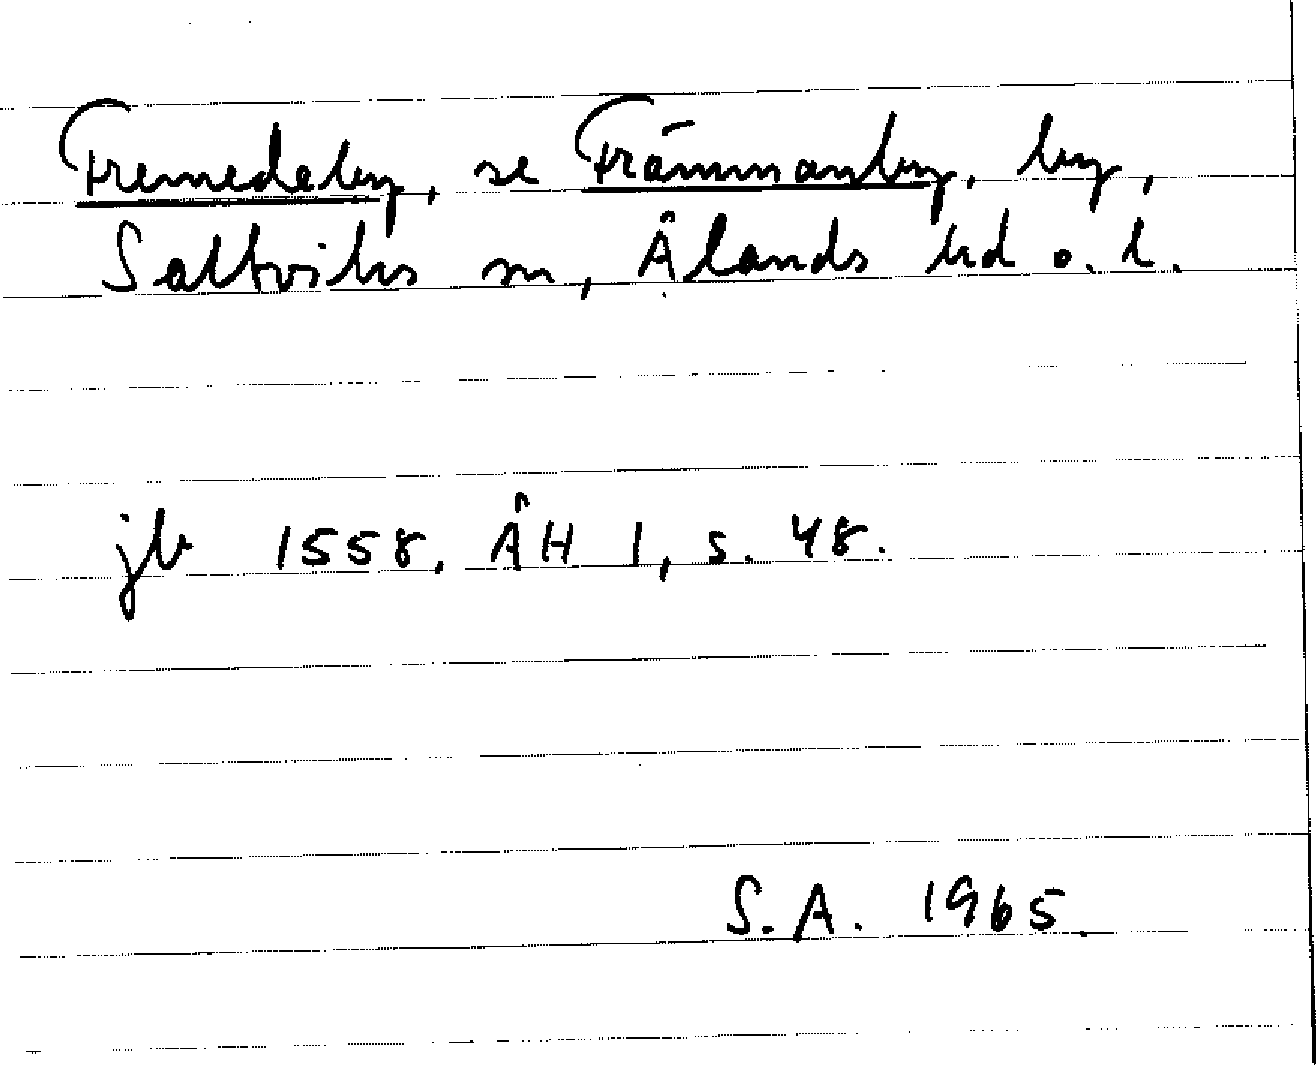 Fremedeby, se Främmanby, by,
Saltviks sn, Ålands hd o. l.
jb 1558. ÅH I, s. 48.
S.A. 1965.